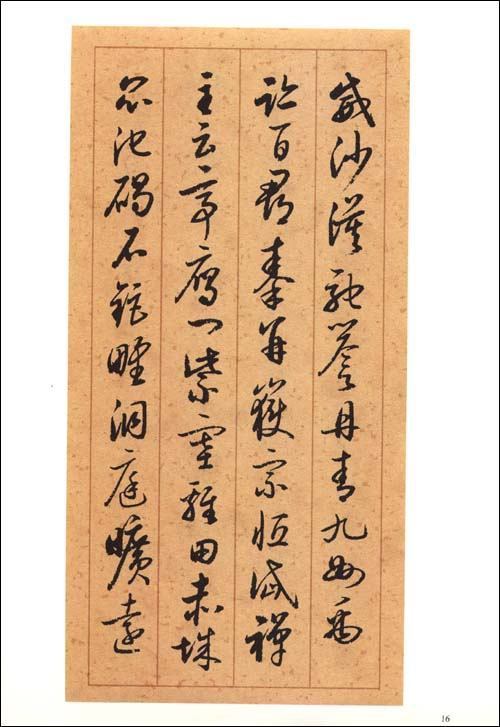 威沙漠馳譽丹青九州禹
跡百郡秦并嶽宗恒岱禪
主云亭雁门紫塞雞田赤城
昆池碣石鉅野洞庭曠遠
16